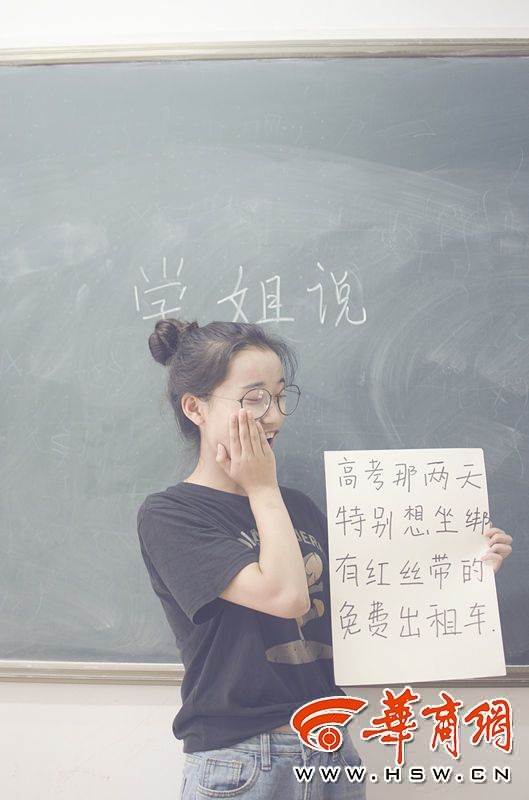 学姐说
高考那两天
特别想坐绑
有红丝带的
免费出租车.
華商網
WWW.HSW.CN